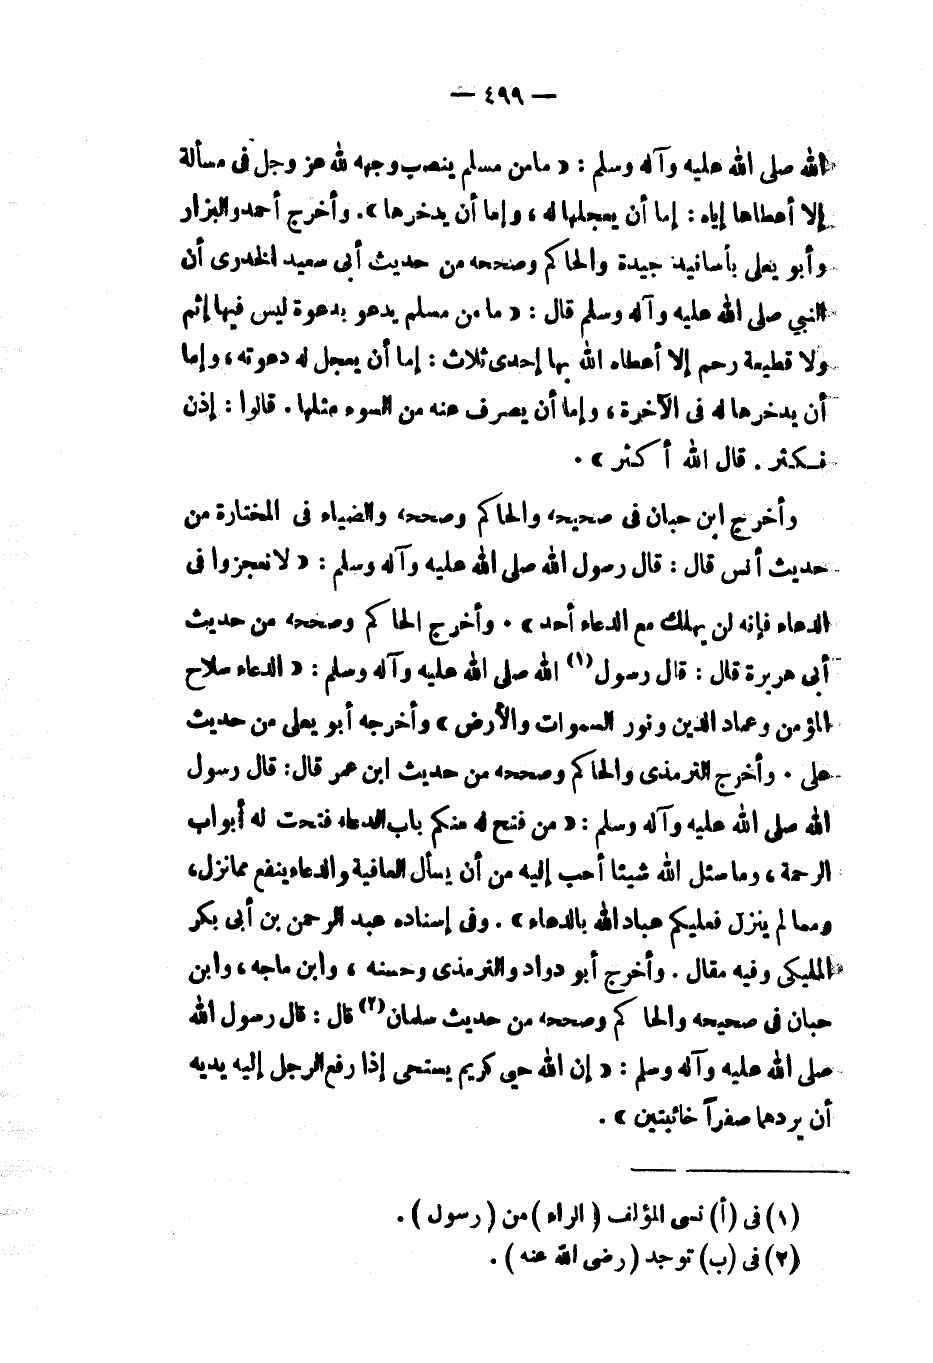 — ٤٩٩ —
الله صلى الله عليه وآله وسلم : « مامن مسلم ينصب وجهه لله عز وجل فى مسألة
إلا أعطاها إياه : إما أن يعجلها له ، وإما أن يدخرها ». وأخرج أحمد والبزار
وأبو يعلى بأسانيد جيدة والحاكم وصححه من حديث أبى سعيد الخدرى أن
النبي صلى الله عليه وآله وسلم قال : « ما من مسلم يدعو بدعوة ليس فيها إثم
ولا قطيعة رحم إلا أعطاه الله بها إحدى ثلاث : إما أن يعجل له دعوته ، وإما
أن يدخرها له فى الآخرة ، وإما أن يصرف عنه من السوء مثلها . قالوا : إذن
نكثر . قال الله أكثر » .
وأخرج ابن حبان فى صحيحه والحاكم وصححه والضياء فى المختارة من
حديث أنس قال : قال رسول الله صلى الله عليه وآله وسلم : « لا تعجزوا فى
الدعاء فإنه لن يهلك مع الدعاء أحد » . وأخرج الحاكم وصححه من حديث
أبى هريرة قال : قال رسول(١) الله صلى الله عليه وآله وسلم : « الدعاء سلاح
المؤمن وعماد الدين ونور السموات والأرض » وأخرجه أبو يعلى من حديث
على . وأخرج الترمذى والحاكم وصححه من حديث ابن عمر قال : قال رسول
الله صلى الله عليه وآله وسلم : « من فتح له منكم باب الدعاء فتحت له أبواب
الرحمة ، وما سئل الله شيئا أحب إليه من أن يسأل العافية والدعاء ينفع مما نزل ،
ومما لم ينزل فعليكم عباد الله بالدعاء » . وفى إسناده عبد الرحمن بن أبى بكر
المليكى وفيه مقال . وأخرج أبو دواد والترمذى وحسنه ، وابن ماجه ، وابن
حبان فى صحيحه والحاكم وصححه من حديث سلمان(٢) قال : قال رسول الله
صلى الله عليه وآله وسلم : « إن الله حى كريم يستحى إذا رفع الرجل إليه يديه
أن يردهما صفرآ خائبتين » .
(١) فى (أ) نسى المؤلف ( الراء ) من ( رسول ) .
(٢) فى (ب) توجد ( رضى الله عنه ) .